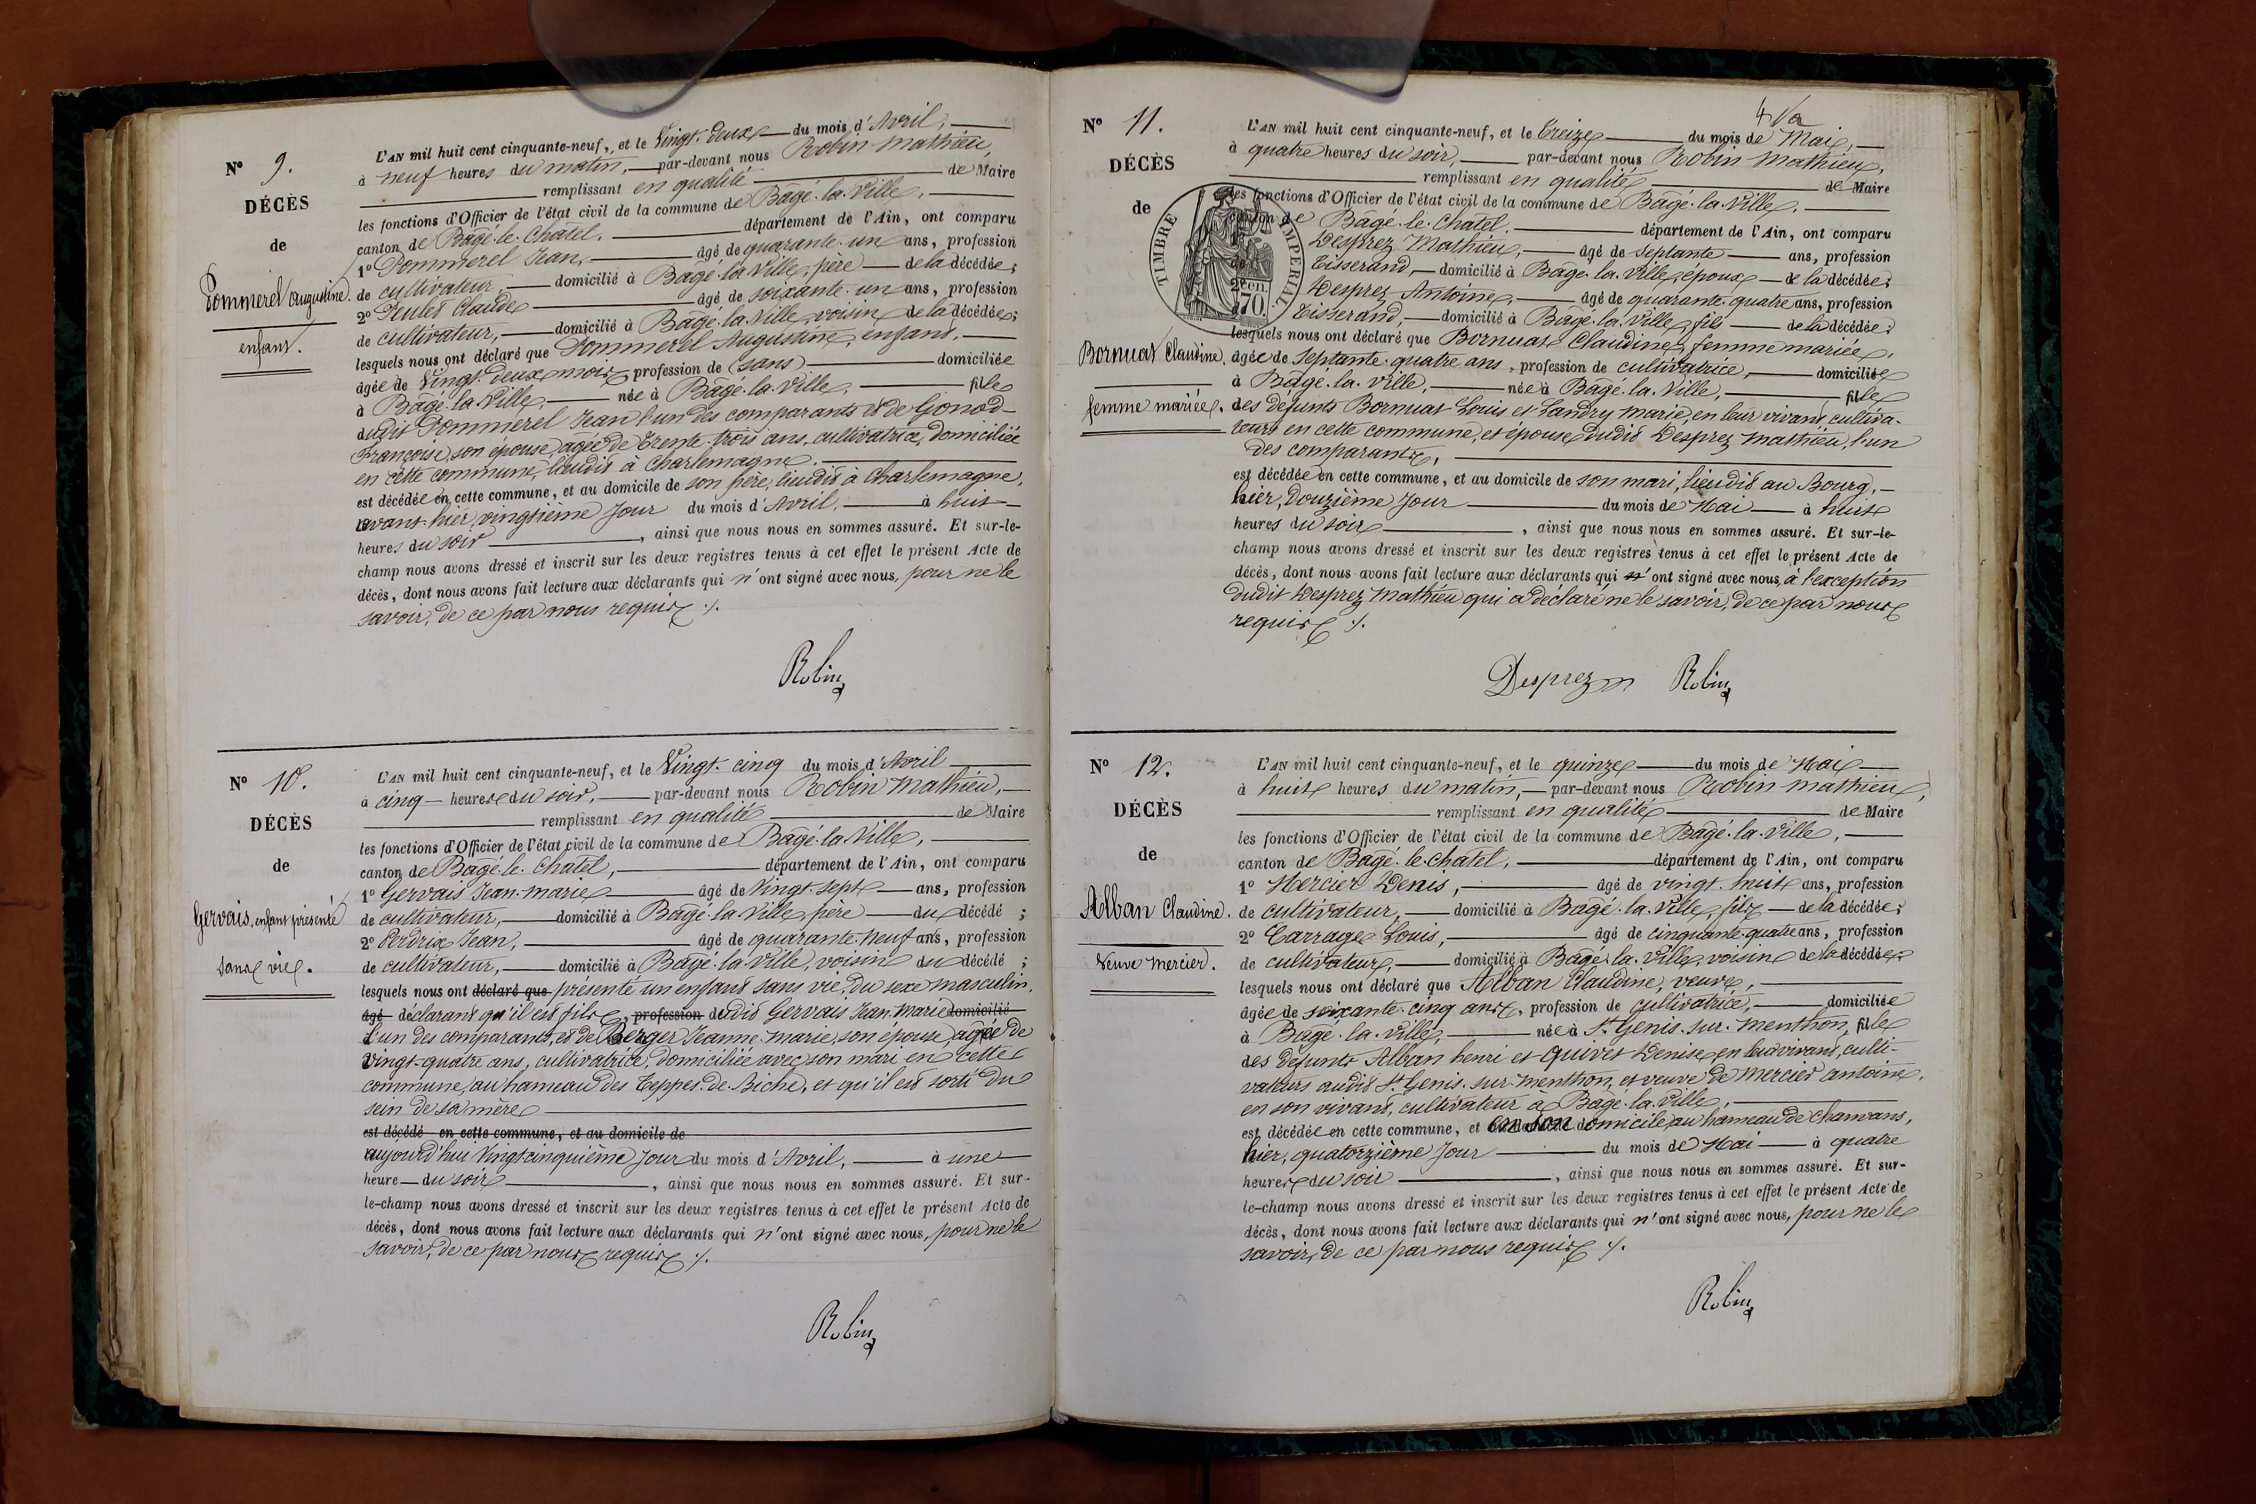 N° 9.
DÉCÈS
de
Pommerel Augustine.
enfant.
L'AN mil huit cent cinquante-neuf, et le Vingt-deux du mois d'Avril,
à neuf heures du matin, par-devant nous Robin Mathieu,
remplissant en qualité de Maire
les fonctions d'Officier de l'état civil de la commune de Bâgé-la-Ville,
canton de Bâgé-le-Chatel, département de l'Ain, ont comparu
1° Pommerel Jean, âgé de quarante-un ans, profession
de cultivateur, domicilié à Bâgé-la-Ville, père de la décédée;
2° Claude âgé de soixante-un ans, profession
de cultivateur, domicilié à Bâgé-la-Ville, voisin de la décédée;
lesquels nous ont déclaré que Pommerel Augustine, enfant,
âgée de Vingt-deux mois, profession de (sans) domiciliée
à Bâgé-la-Ville, née à Bâgé-la-Ville, fille
dudit Pommerel Jean l'un des comparants et de Gonod
Françoise, son épouse, âgée de trente-trois ans, cultivatrice, domiciliée
en cette commune, lieudit à Charlemagne.
est décédée en cette commune, et au domicile de son père, lieudit à Charlemagne,
avant-hier, vingtième jour du mois d'Avril, à huit
heures du soir, ainsi que nous nous en sommes assuré. Et sur-le-
champ nous avons dressé et inscrit sur les deux registres tenus à cet effet le présent Acte de
décès, dont nous avons fait lecture aux déclarants qui n'ont signé avec nous, pour ne le
savoir, de ce par nous requis ./.
Robin
N° 10.
DÉCÈS
de
Gervais, enfant présenté
sans vie.
L'AN mil huit cent cinquante-neuf, et le Vingt-cinq du mois d'Avril
à cinq heures du soir, par-devant nous Robin Mathieu,
remplissant en qualité de Maire
les fonctions d'Officier de l'état civil de la commune de Bâgé-la-Ville,
canton de Bâgé-le-Chatel, département de l'Ain, ont comparu
1° Gervais Jean-Marie âgé de Vingt-sept ans, profession
de cultivateur, domicilié à Bâgé-la-Ville, père du décédé;
2° Perdrix Jean, âgé de quarante-neuf ans, profession
de cultivateur, domicilié à Bâgé-la-Ville, voisin du décédé;
lesquels nous ont déclaré que présenté un enfant sans vie, du sexe masculin,
âgé déclarant qu'il est fils profession dudit Gervais Jean-Marie domicilié
l'un des comparants, et de Berger Jeanne-Marie, son épouse, âgée de
vingt-quatre ans, cultivatrice, domiciliée avec son mari en cette
commune, au hameau des Teppes-de-Biche, et qu'il est sorti du
sein de sa mère
est décédé en cette commune, et au domicile de
aujourd'hui Vingt cinquième jour du mois d'Avril, à une
heure du soir, ainsi que nous nous en sommes assuré. Et sur-
le-champ nous avons dressé et inscrit sur les deux registres tenus à cet effet le présent Acte de
décès, dont nous avons fait lecture aux déclarants qui n'ont signé avec nous, pour ne le
savoir, de ce par nous requis ./.
Robin
N° 11.
DÉCÈS
de
TIMBRE IMPERIAL
70.
Bornuat Claudine.
femme mariée.
L'AN mil huit cent cinquante-neuf, et le treize du mois de Mai,
à quatre heures du soir, par-devant nous Robin Mathieu,
remplissant en qualité de Maire
les fonctions d'Officier de l'état civil de la commune de Bâgé-la-Ville.
canton de Bâgé-le-Chatel. département de l'Ain, ont comparu
Desprez Mathieu, âgé de septante ans, profession
Tisserand, domicilié à Bâgé-la-Ville, époux de la décédée;
Desprez Antoine, âgé de quarante-quatre ans, profession
Tisserand, domicilié à Bâgé-la-Ville, fils de la décédée;
lesquels nous ont déclaré que Bornuat Claudine, femme mariée,
âgée de septante-quatre ans, profession de cultivatrice, domiciliée
à Bâgé-la-Ville, née à Bâgé-la-Ville, fille
des défunts Bornuat Louis et Landry Marie, en leur vivant, cultiva-
teurs en cette commune, et épouse dudit Desprez Mathieu, l'un
des comparants,
est décédée en cette commune, et au domicile de son mari, lieudit au Bourg,
hier, Douzième jour du mois de Mai à huit
heures du soir, ainsi que nous nous en sommes assuré. Et sur-le-
champ nous avons dressé et inscrit sur les deux registres tenus à cet effet le présent Acte de
décès, dont nous avons fait lecture aux déclarants qui n'ont signé avec nous, à l'exception
dudit Desprez Mathieu qui a déclaré ne le savoir, de ce par nous
requis ./.
Desprez Robin
N° 12.
DÉCÈS
de
Alban Claudine.
Veuve Mercier.
L'AN mil huit cent cinquante-neuf, et le quinze du mois de Mai
à huit heures du matin, par-devant nous Robin Mathieu,
remplissant en qualité de Maire
les fonctions d'Officier de l'état civil de la commune de Bâgé-la-Ville,
canton de Bâgé-le-Chatel, département de l'Ain, ont comparu
1° Mercier Denis, âgé de vingt-huit ans, profession
de cultivateur, domicilié à Bâgé-la-Ville, fils de la décédée;
2° Carrage Louis, âgé de cinquante-quatre ans, profession
de cultivateur, domicilié à Bâgé-la-Ville, voisin de la décédée;
lesquels nous ont déclaré que Alban Claudine, veuve,
âgée de soixante-cinq ans, profession de cultivatrice, domiciliée
à Bâgé-la-Ville, née à St Genis-sur-Menthon, fille
des défunts Alban henri et Quivet Denise, en leur vivant, culti-
vateurs audit St Genis-sur-Menthon, et veuve de Mercier Antoine,
en son vivant, cultivateur à Bâgé-la-Ville,
est décédée en cette commune, et en son domicile, au hameau de Chamans,
hier, quatorzième jour du mois de Mai à quatre
heures du soir, ainsi que nous nous en sommes assuré. Et sur-
le-champ nous avons dressé et inscrit sur les deux registres tenus à cet effet le présent Acte de
décès, dont nous avons fait lecture aux déclarants qui n'ont signé avec nous, pour ne le
savoir, de ce par nous requis ./.
Robin